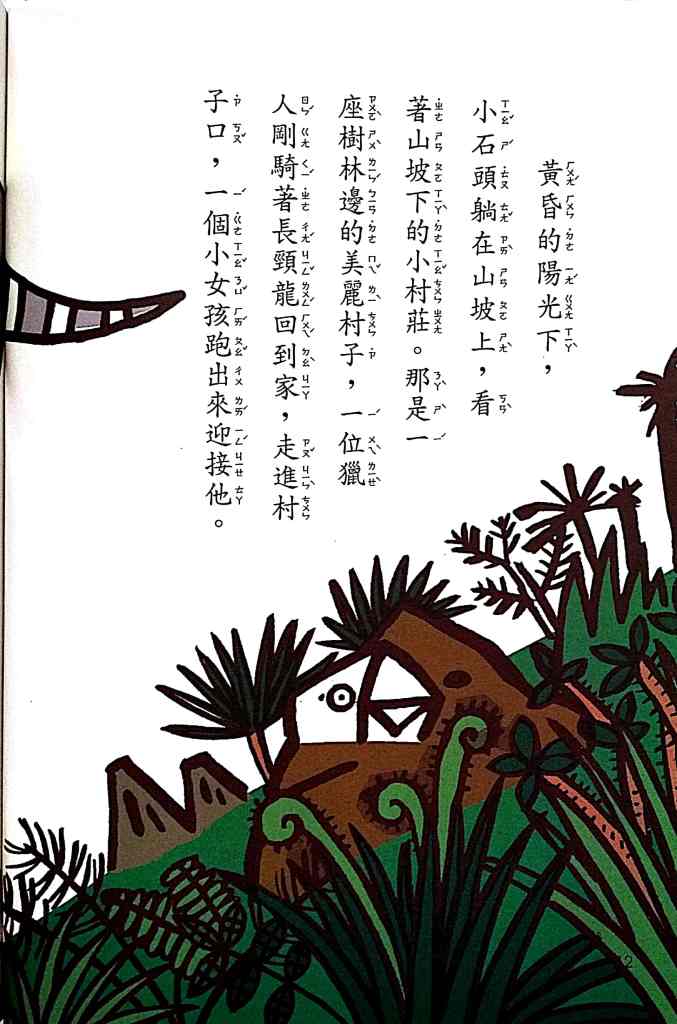 黃昏的陽光下，
小石頭躺在山坡上，看
著山坡下的小村莊。那是一
座樹林邊的美麗村子，一位獵
人剛騎著長頸龍回到家，走進村
子口，一個小女孩跑出來迎接他。
2